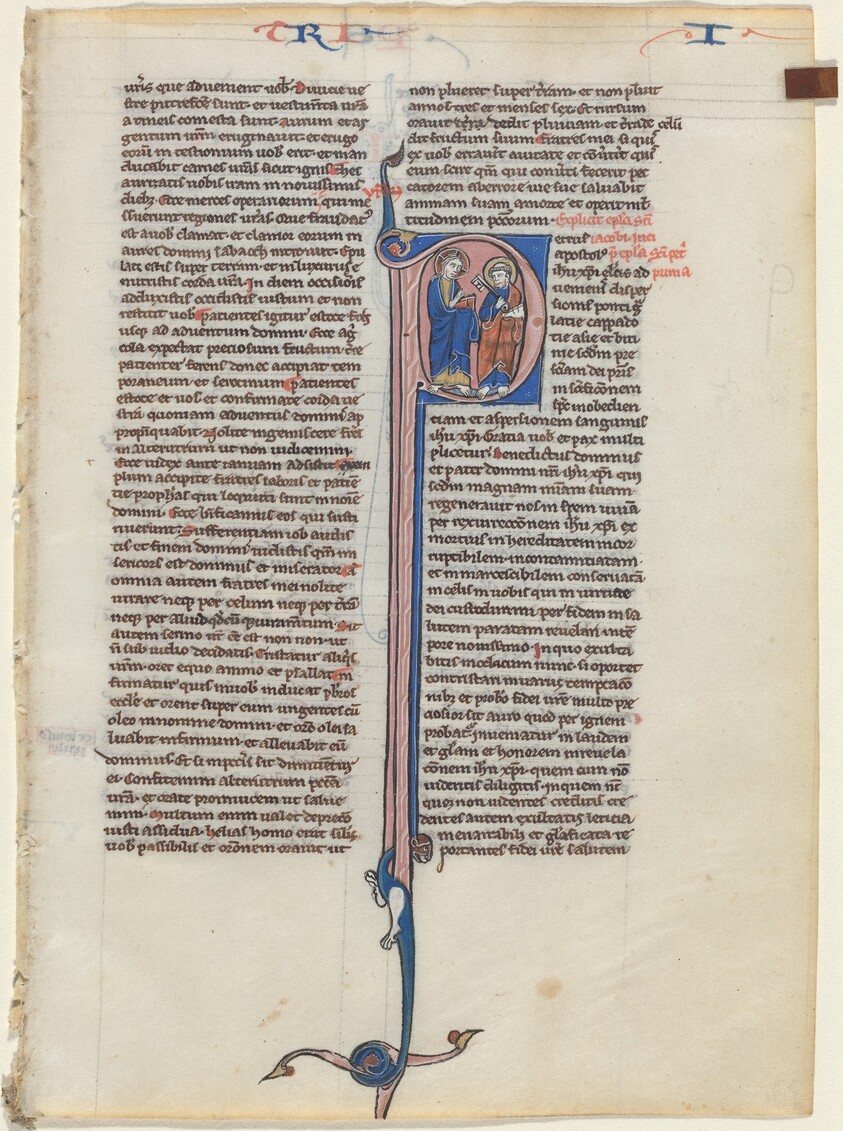 TRI I
ur̄is que aduenient uob̄. Diuicie ue
stre putrefc̄e sunt. et uestim̄ta ur̄a
a tineis comesta sunt. Aurum et ar
gentum ur̄m eruginauit. et erugo
eoru᷑ in testimonium uob̄ erit. et man
ducabit carnes ur̄as sicut ignis. Thes
aurizatis uobis iram in nouissimis
dieb⁊. Ecce merces operariorum qui me
ssuerunt regiones ur̄as. Que fraudat᷒
est a uob̄ clamat. et clamor eorum in
aures domini sabaoth introiuit. Epu
lati estis super terram. et in luxuriis e
nutristis corda ur̄a. In diem occisiōis
adduxistis occidistis iustum et non
restitit uob̄. Patientes igitur estote fr̄es
usq; ad aduentum domini. Ecce ag̊
cola expectat preciosum fructum tr̄e
patienter ferens donec accipiat tem
poraneum. et serotinum. Patientes
estote et uos et confirmate corda ue
stra quoniam aduentus domini ap
propiquabit. Nolite ingemiscere fr̄es
in alterutrum ut non iudicemini.
Ecce iudex ante ianuam adsistit. Exem
plum accipite fratres laboris et patiē
tie prophās qui locuti sunt in noīe
domini. Ecce bīficamus eos qui susti
nuerunt. Sufferentiam iob audis
tis et finem domini uidistis qm̄ mi
sericors est dominus et miserator. A
omnia autem fratres mei nolite
iurare neq; per celum neq; per tr̄ā
neq; per aliud qd̄cūq; iuramtum. Sit
autem sermo ur̄ ē est non non. ut
n̄ sub iudio decidatis. Tristatur aliq̇s
ur̄m. oret equo animo et psallat. In
firmatur quis in uob̄ inducat pb̄ros
eccl̄e et orent super eum ungentes eū
oleo in nomine domini. et or̄o fidei sa
luabit infirmum. et alleuabit eū
dominus. Et si in pcc̄is sit dimittent᷒
ei. Confitemini alterutrum pcc̄a
ur̄a. et orate pro inuicem ut salue
mini. Multum enim ualet deprec̄o
iusti assidua. helias homo erat silis
uob̄ passibilis et or̄onem orauit ut
non plueret super tr̄am. et non pluit
annos tres et menses sex. Et rursum
orauit dedit pluuiam. et tr̄a de celū
dit fructum suum. Fratres mei si quis
ex uob̄ errauit a uitate et cōuerit quis
eum scire qm̄ qui conūti fecerit pec
catorem ab errore uie sue saluabit
animam suam a morte et operit mlt̄
titudinem pccorum. Explicit epl̄a sc̄i
iacobi. Inci
p̄ epl̄a sc̄i pet̄
prima
etrus
apostolus
ih̄u xp̄i elc̄is ad
uenieni disper
sionis ponti g̊
latie cappado
tie asie et biti
nie scd̄m pre
sc̄iam dei pr̄is
in sc̄ificōnem
sp̄c in obedien
tiam et aspersionem sanguinis
ih̄u xp̄i. Gratia uob̄ et pax multi
plicetur. Benedictus dominus
et pater domini nr̄i ih̄u xp̄i qui
scd̄m magnam mīam suam
regenerauit nos in spem uiuā
per resurrecc̄onem ih̄u xp̄i ex
mortuis in hereditatem incor
ruptibilem. incontaminatam.
et inmarcescibilem conseruatā
in celis in uobis qui in uirtute
dei custodimini per fidem in sa
lutem paratam reuelari in tē
pore nouissimo. In quo exulta
bitis modicum nunc si oportet
contristari in uariis temptac̄o
nib⁊ et probo fidei ur̄e multo pre
ciosior sit auro quod per ignem
probat᷒ inueniatur in laudem
et gl̄am et honorem in reuela
c̄onem ih̄u xp̄i. quem cum nō
uideritis diligitis. in quem nē
quoq; non uidentes creditis cre
dentes autem exultatis leticia
inenarrabili et gl̄ificata re
portantes fidei ur̄e salutem